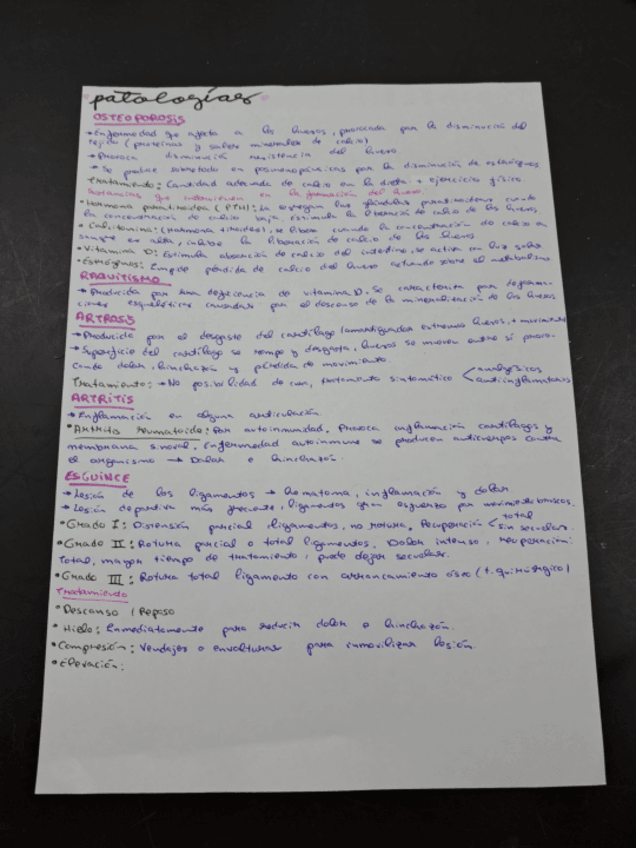 patologías
OSTEOPOROSIS
→ Enfermedad que afecta a los huesos, provocada por la disminución del
tejido (proteínas y sales minerales de calcio)
→ Provoca disminución resistencia del hueso.
→ Se produce sobretodo en posmenopáusicas por la disminución de estrógenos
Tratamiento: Cantidad adecuada de calcio en la dieta + ejercicio físico.
Sustancias que intervienen en la formación del hueso
• Hormona paratiroidea (PTH): La segregan las glándulas paratiroideas cuando
la concentración de calcio baja. Estimula la liberación de calcio de los huesos.
• Calcitonina: (Hormona tiroidea), se libera cuando la concentración de calcio en
sangre es alta, inhibe la liberación de calcio de los huesos
• Vitamina D: Estimula absorción de calcio del intestino, se activa con luz solar
• Estrógenos: Empide pérdida de calcio del hueso actuando sobre el metabolismo
RAQUITISMO
→ Producida por una deficiencia de vitamina D. Se caracteriza por deforma-
ciones esqueléticas causadas por el descenso de la mineralización de los huesos
ARTROSIS
→ Producida por el desgaste del cartílago (amortiguador extremos huesos, + movimiento
→ Superficie del cartílago se rompe y desgasta, huesos se mueven entre sí provo-
cando dolor, hinchazón y pérdida de movimiento.
Tratamiento: → No posibilidad de cura, tratamiento sintomático < analgésicos
antiinflamatorios
ARTRITIS
→ Inflamación en alguna articulación.
• Artritis reumatoide: Por autoinmunidad. Provoca inflamación cartílagos y
membrana sinovial. Enfermedad autoinmune se producen anticuerpos contra
el organismo → Dolor e hinchazón.
ESGUINCE
→ Lesión de los ligamentos → hematoma, inflamación y dolor
→ Lesión deportiva más frecuente, ligamentos gran esfuerzo por movimientos bruscos.
• Grado I: Distensión parcial ligamentos, no rotura. Recuperación < total
sin secuelas.
• Grado II: Rotura parcial o total ligamentos. Dolor intenso, recuperación:
Total, mayor tiempo de tratamiento, puede dejar secuelas.
• Grado III: Rotura total ligamento con arrancamiento óseo (t. quirúrgico)
Tratamiento
• Descanso / Reposo
• Hielo: Inmediatamente para reducir dolor e hinchazón.
• Compresión: Vendajes o envolturas para inmovilizar lesión.
• Elevación: